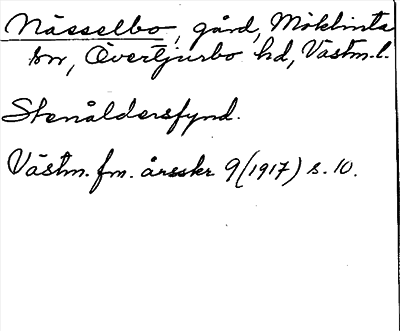 Nässelbo, gård, Möklinta
sn, Övertjurbo hd, Västm.l.
Stenåldersfynd.
Västm. fm. årsskr 9 (1917) s. 10.